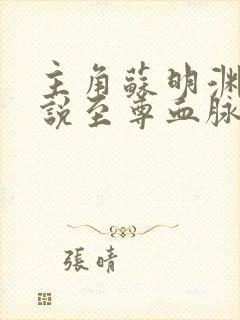 主角蘇明淵
說至尊血脈
張晴